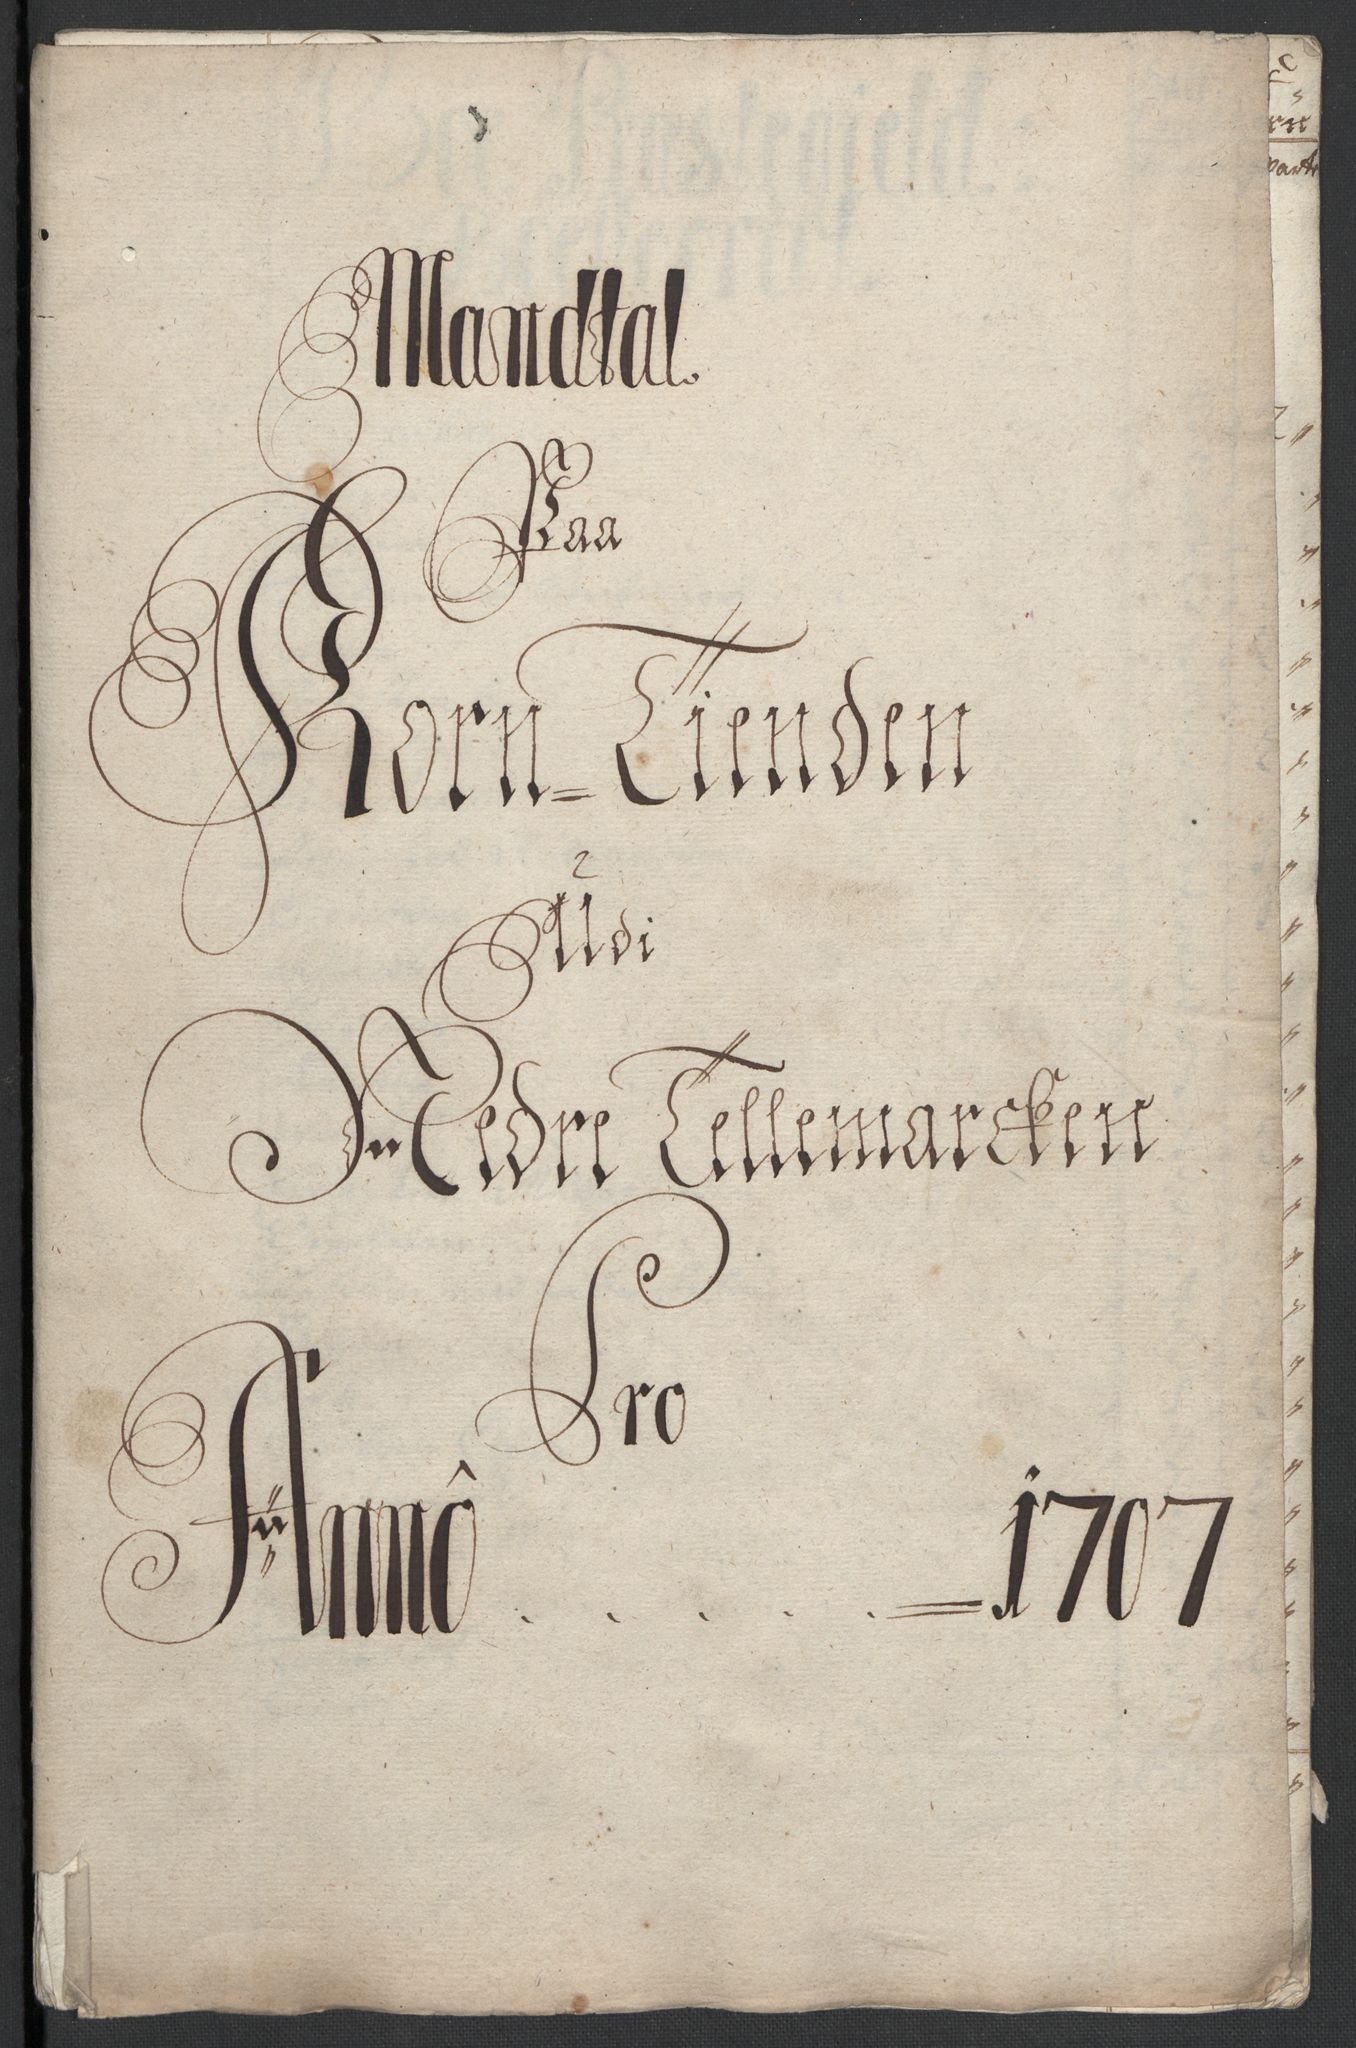 Mandtal.
Paa
Korn=Tienden
Udi
Nedre Tellemarcken
Pro
Annô . . . . . = 1707